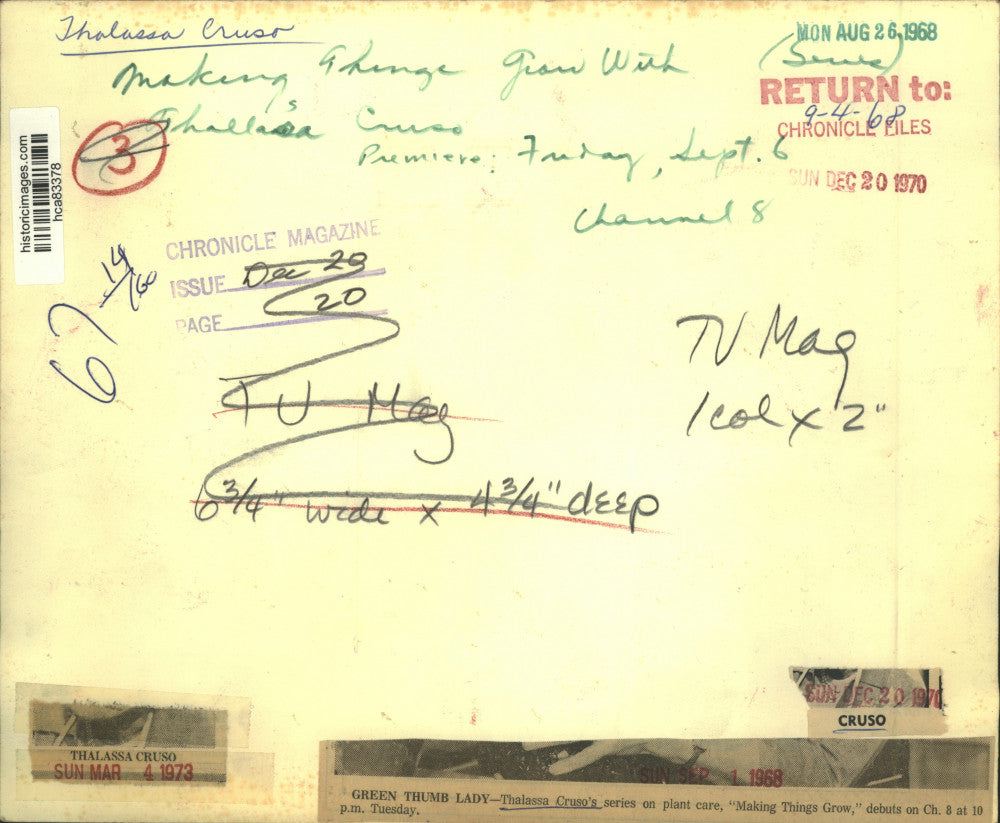 Thalassa Cruso
MON AUG 26 1968
Making Things Grow With (Series)
Thallassa Cruso
RETURN to:
9-4-68
CHRONICLE FILES
Premiere: Friday, Sept. 6
SUN DEC 20 1970
Channel 8
3
historicimages.com
hca83378
CHRONICLE MAGAZINE
ISSUE Dec 20
PAGE 20
67
TV Mag
1 col x 2"
TV Mag
6 3/4" wide x 4 3/4" deep
SUN DEC 20 1970
CRUSO
THALASSA CRUSO
SUN MAR 4 1973
SUN SEP 1 1968
GREEN THUMB LADY—Thalassa Cruso's series on plant care, "Making Things Grow," debuts on Ch. 8 at 10
p.m. Tuesday.